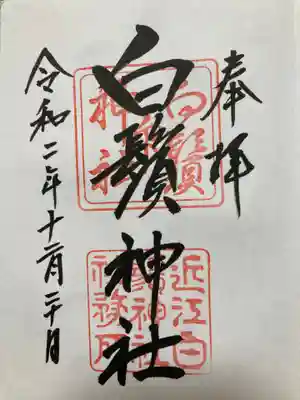 奉拝
白鬚神社
令和二年十二月二十日
白鬚
神社
近江白
鬚神社